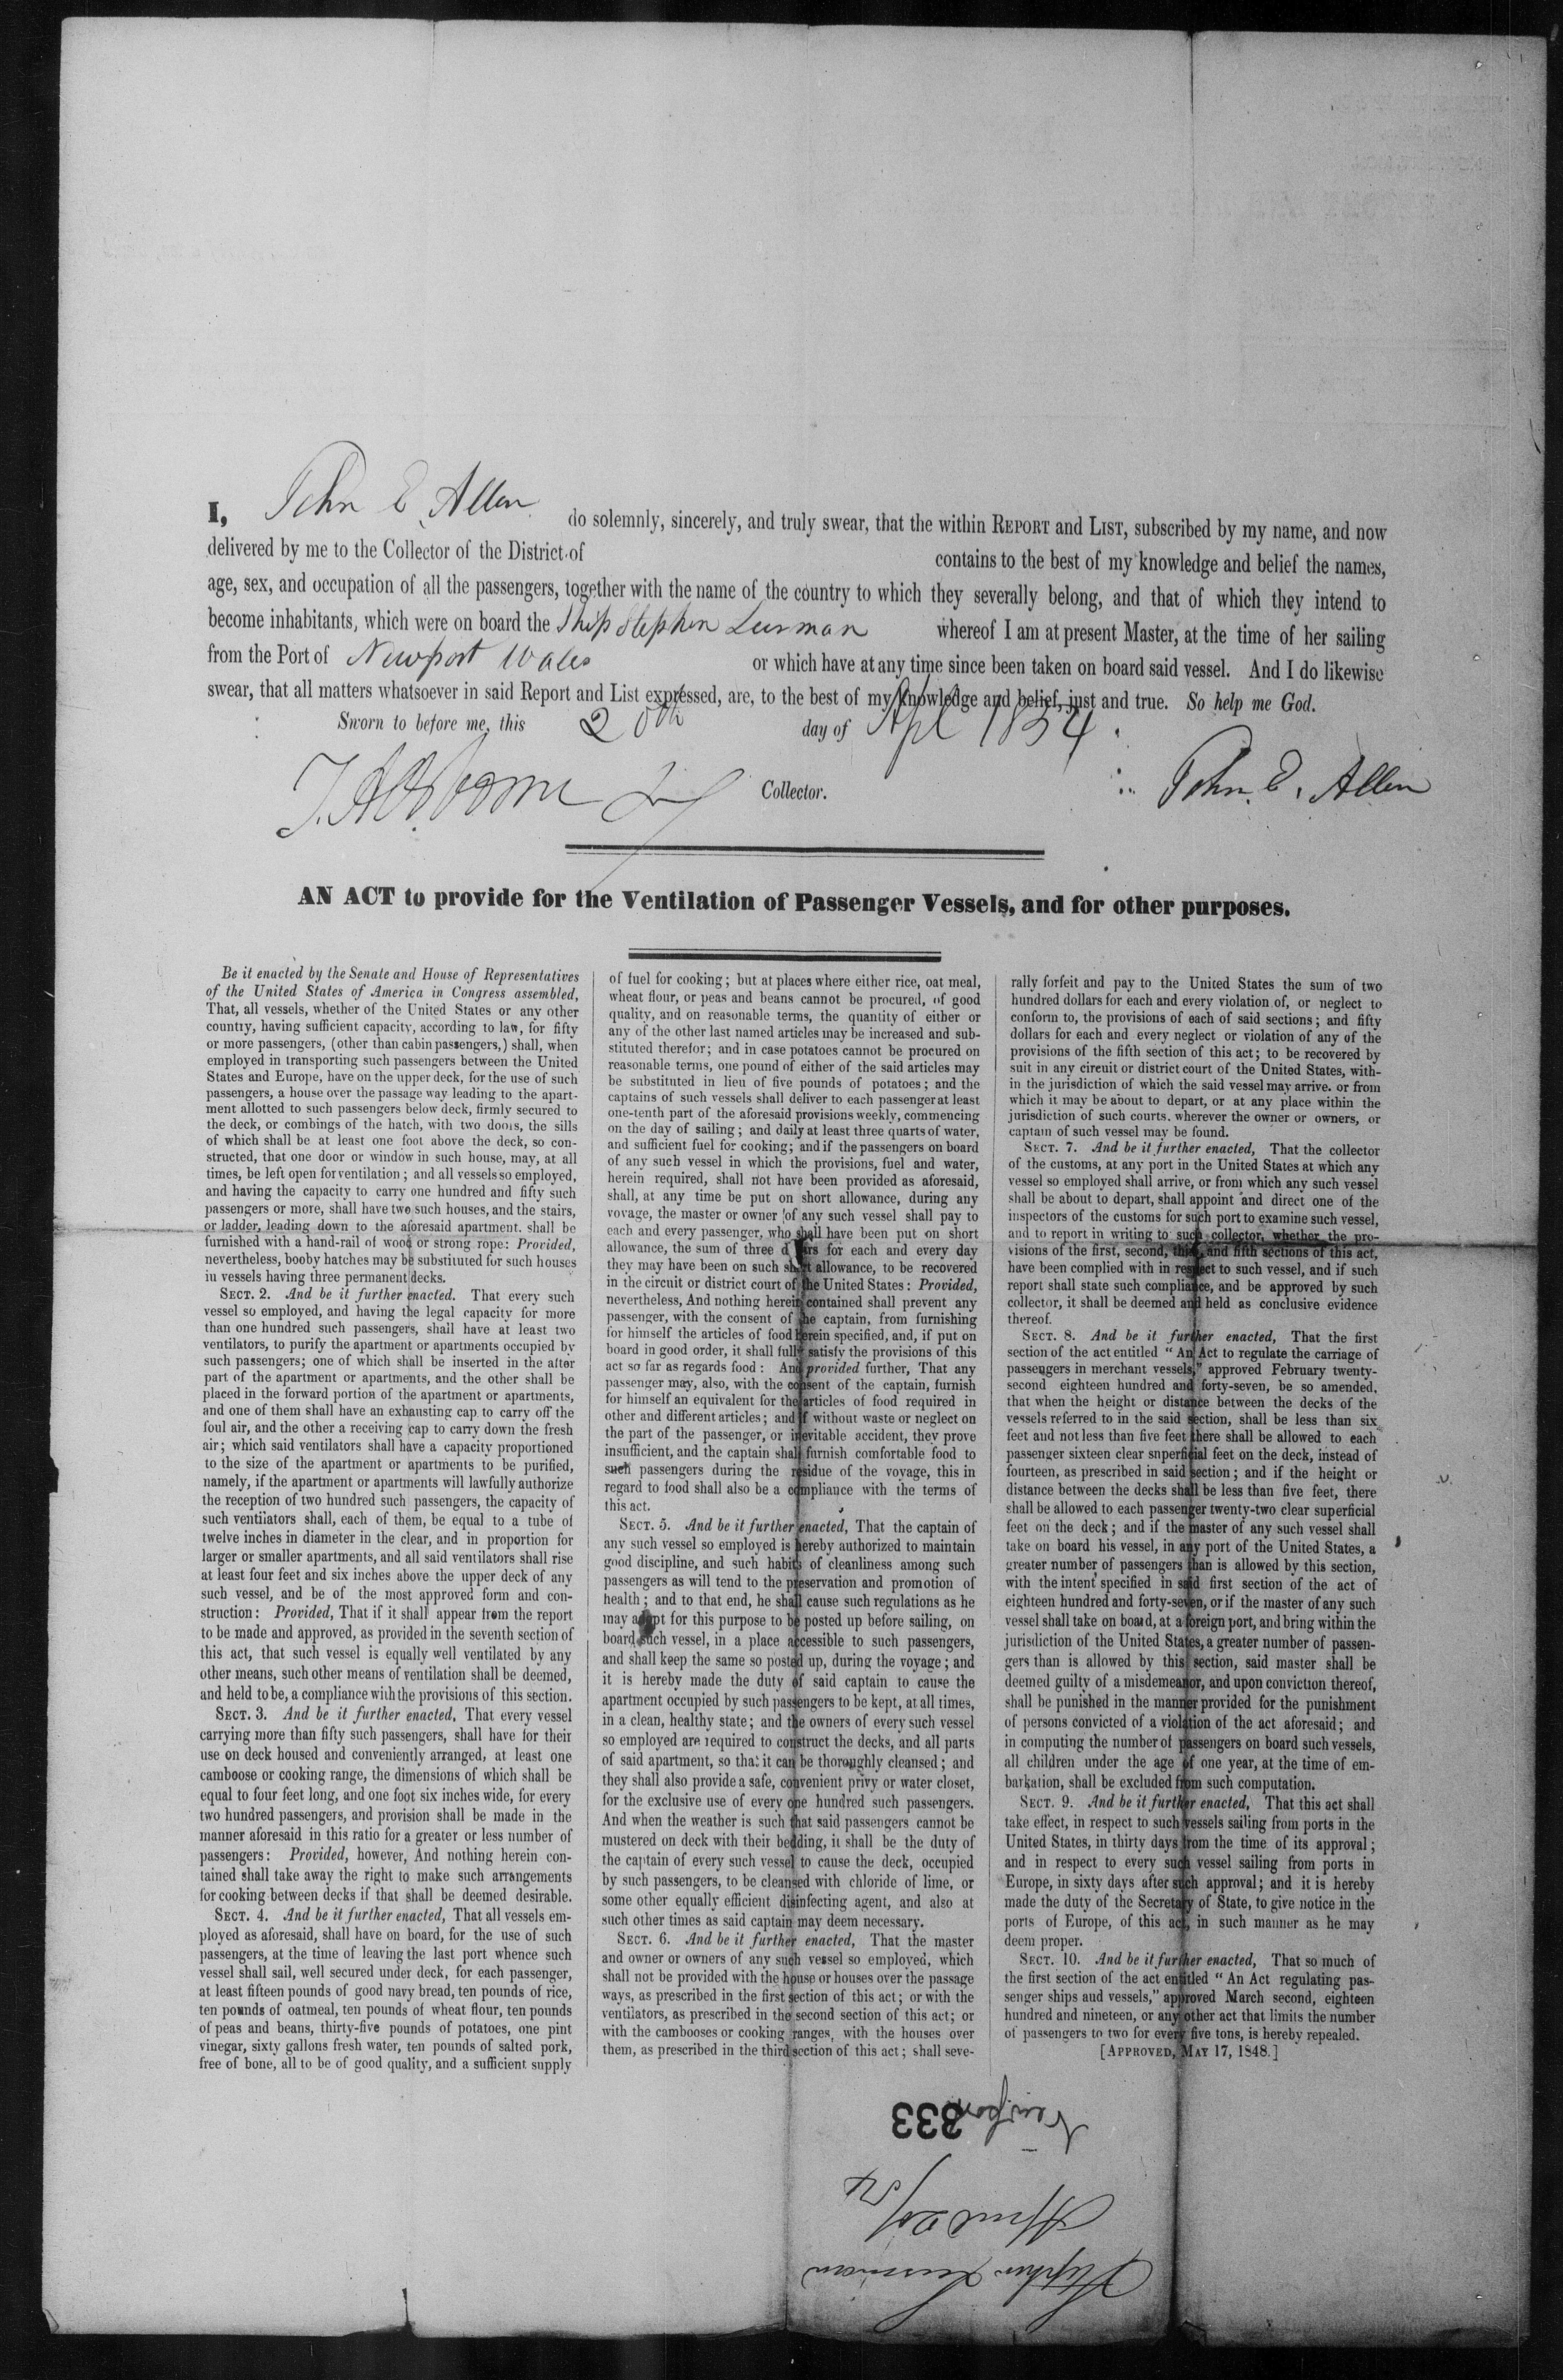 I, John E. Allen do solemnly, sincerely, and truly swear, that the within REPORT and LIST, subscribed by my name, and now
delivered by me to the Collector of the District of contains to the best of my knowledge and belief the names,
age, sex, and occupation of all the passengers, together with the name of the country to which they severally belong, and that of which they intend to
become inhabitants, which were on board the Ship Stephen Lurman whereof I am at present Master, at the time of her sailing
from the Port of Newport Wales or which have at any time since been taken on board said vessel. And I do likewise
swear, that all matters whatsoever in said Report and List expressed, are, to the best of my knowledge and belief, just and true. So help me God.
Sworn to before me, this 20th day of Apl 1854
Collector. John E. Allen
AN ACT to provide for the Ventilation of Passenger Vessels, and for other purposes.
Be it enacted by the Senate and House of Representatives
of the United States of America in Congress assembled,
That, all vessels, whether of the United States or any other
country, having sufficient capacity, according to law, for fifty
or more passengers, (other than cabin passengers,) shall, when
employed in transporting such passengers between the United
States and Europe, have on the upper deck, for the use of such
passengers, a house over the passage way leading to the apart-
ment allotted to such passengers below deck, firmly secured to
the deck, or combings of the hatch, with two doors, the sills
of which shall be at least one foot above the deck, so con-
structed, that one door or window in such house, may, at all
times, be left open for ventilation; and all vessels so employed,
and having the capacity to carry one hundred and fifty such
passengers or more, shall have two such houses, and the stairs,
or ladder, leading down to the aforesaid apartment. shall be
furnished with a hand-rail of wood or strong rope: Provided,
nevertheless, booby hatches may be substituted for such houses
in vessels having three permanent decks.
SECT. 2. And be it further enacted. That every such
vessel so employed, and having the legal capacity for more
than one hundred such passengers, shall have at least two
ventilators, to purify the apartment or apartments occupied by
such passengers; one of which shall be inserted in the after
part of the apartment or apartments, and the other shall be
placed in the forward portion of the apartment or apartments,
and one of them shall have an exhausting cap to carry off the
foul air, and the other a receiving cap to carry down the fresh
air; which said ventilators shall have a capacity proportioned
to the size of the apartment or apartments to be purified,
namely, if the apartment or apartments will lawfully authorize
the reception of two hundred such passengers, the capacity of
such ventilators shall, each of them, be equal to a tube of
twelve inches in diameter in the clear, and in proportion for
larger or smaller apartments, and all said ventilators shall rise
at least four feet and six inches above the upper deck of any
such vessel, and be of the most approved form and con-
struction: Provided, That if it shall appear from the report
to be made and approved, as provided in the seventh section of
this act, that such vessel is equally well ventilated by any
other means, such other means of ventilation shall be deemed,
and held to be, a compliance with the provisions of this section.
SECT. 3. And be it further enacted, That every vessel
carrying more than fifty such passengers, shall have for their
use on deck housed and conveniently arranged, at least one
camboose or cooking range, the dimensions of which shall be
equal to four feet long, and one foot six inches wide, for every
two hundred passengers, and provision shall be made in the
manner aforesaid in this ratio for a greater or less number of
passengers: Provided, however, And nothing herein con-
tained shall take away the right to make such arrangements
for cooking between decks if that shall be deemed desirable.
SECT. 4. And be it further enacted, That all vessels em-
ployed as aforesaid, shall have on board, for the use of such
passengers, at the time of leaving the last port whence such
vessel shall sail, well secured under deck, for each passenger,
at least fifteen pounds of good navy bread, ten pounds of rice,
ten pounds of oatmeal, ten pounds of wheat flour, ten pounds
of peas and beans, thirty-five pounds of potatoes, one pint
vinegar, sixty gallons fresh water, ten pounds of salted pork,
free of bone, all to be of good quality, and a sufficient supply
of fuel for cooking; but at places where either rice, oat meal,
wheat flour, or peas and beans cannot be procured, of good
quality, and on reasonable terms, the quantity of either or
any of the other last named articles may be increased and sub-
stituted therefor; and in case potatoes cannot be procured on
reasonable terms, one pound of either of the said articles may
be substituted in lieu of five pounds of potatoes; and the
captains of such vessels shall deliver to each passenger at least
one-tenth part of the aforesaid provisions weekly, commencing
on the day of sailing; and daily at least three quarts of water,
and sufficient fuel for cooking; and if the passengers on board
of any such vessel in which the provisions, fuel and water,
herein required, shall not have been provided as aforesaid,
shall, at any time be put on short allowance, during any
voyage, the master or owner of any such vessel shall pay to
each and every passenger, who shall have been put on short
allowance, the sum of three dollars for each and every day
they may have been on such short allowance, to be recovered
in the circuit or district court of the United States: Provided,
nevertheless, And nothing herein contained shall prevent any
passenger, with the consent of the captain, from furnishing
for himself the articles of food herein specified, and, if put on
board in good order, it shall fully satisfy the provisions of this
act so far as regards food: And provided further, That any
passenger may, also, with the consent of the captain, furnish
for himself an equivalent for the articles of food required in
other and different articles; and if without waste or neglect on
the part of the passenger, or inevitable accident, they prove
insufficient, and the captain shall furnish comfortable food to
such passengers during the residue of the voyage, this in
regard to food shall also be a compliance with the terms of
this act.
SECT. 5. And be it further enacted, That the captain of
any such vessel so employed is hereby authorized to maintain
good discipline, and such habits of cleanliness among such
passengers as will tend to the preservation and promotion of
health; and to that end, he shall cause such regulations as he
may adopt for this purpose to be posted up before sailing, on
board such vessel, in a place accessible to such passengers,
and shall keep the same so posted up, during the voyage; and
it is hereby made the duty of said captain to cause the
apartment occupied by such passengers to be kept, at all times,
in a clean, healthy state; and the owners of every such vessel
so employed are required to construct the decks, and all parts
of said apartment, so that it can be thoroughly cleansed; and
they shall also provide a safe, convenient privy or water closet,
for the exclusive use of every one hundred such passengers.
And when the weather is such that said passengers cannot be
mustered on deck with their bedding, it shall be the duty of
the captain of every such vessel to cause the deck, occupied
by such passengers, to be cleansed with chloride of lime, or
some other equally efficient disinfecting agent, and also at
such other times as said captain may deem necessary.
SECT. 6. And be it further enacted, That the master
and owner or owners of any such vessel so employed, which
shall not be provided with the house or houses over the passage
ways, as prescribed in the first section of this act; or with the
ventilators, as prescribed in the second section of this act; or
with the cambooses or cooking ranges, with the houses over
them, as prescribed in the third section of this act; shall seve-
rally forfeit and pay to the United States the sum of two
hundred dollars for each and every violation of, or neglect to
conform to, the provisions of each of said sections; and fifty
dollars for each and every neglect or violation of any of the
provisions of the fifth section of this act; to be recovered by
suit in any circuit or district court of the United States, with-
in the jurisdiction of which the said vessel may arrive. or from
which it may be about to depart, or at any place within the
jurisdiction of such courts. wherever the owner or owners, or
captain of such vessel may be found.
SECT. 7. And be it further enacted, That the collector
of the customs, at any port in the United States at which any
vessel so employed shall arrive, or from which any such vessel
shall be about to depart, shall appoint and direct one of the
inspectors of the customs for such port to examine such vessel,
and to report in writing to such collector, whether the pro-
visions of the first, second, third, and fifth sections of this act,
have been complied with in respect to such vessel, and if such
report shall state such compliance, and be approved by such
collector, it shall be deemed and held as conclusive evidence
thereof.
SECT. 8. And be it further enacted, That the first
section of the act entitled "An Act to regulate the carriage of
passengers in merchant vessels," approved February twenty-
second eighteen hundred and forty-seven, be so amended.
that when the height or distance between the decks of the
vessels referred to in the said section, shall be less than six
feet and not less than five feet there shall be allowed to each
passenger sixteen clear snperficial feet on the deck, instead of
fourteen, as prescribed in said section; and if the height or
distance between the decks shall be less than five feet, there
shall be allowed to each passenger twenty-two clear superficial
feet on the deck; and if the master of any such vessel shall
take on board his vessel, in any port of the United States, a
greater number of passengers than is allowed by this section,
with the intent specified in said first section of the act of
eighteen hundred and forty-seven, or if the master of any such
vessel shall take on board, at a foreign port, and bring within the
jurisdiction of the United States, a greater number of passen-
gers than is allowed by this section, said master shall be
deemed guilty of a misdemeanor, and upon conviction thereof,
shall be punished in the manner provided for the punishment
of persons convicted of a violation of the act aforesaid; and
in computing the number of passengers on board such vessels,
all children under the age of one year, at the time of em-
barkation, shall be excluded from such computation.
SECT. 9. And be it further enacted, That this act shall
take effect, in respect to such vessels sailing from ports in the
United States, in thirty days from the time of its approval;
and in respect to every such vessel sailing from ports in
Europe, in sixty days after such approval; and it is hereby
made the duty of the Secretary of State, to give notice in the
ports of Europe, of this act, in such manner as he may
deem proper.
SECT. 10. And be it further enacted, That so much of
the first section of the act entitled "An Act regulating pas-
senger ships aud vessels," approved March second, eighteen
hundred and nineteen, or any other act that limits the number
of passengers to two for every five tons, is hereby repealed.
[APPROVED, MAY 17, 1848.]
Stephen Lurman
April 20/54
Newport
333